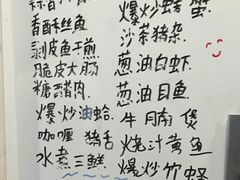 香酥丝鱼
剥皮鱼干煎
脆皮大肠
糖醋猪肉
爆炒油蛤
咖喱猪舌
水煮三鲜
爆炒蛏蟹
沙茶猪杂
葱油白虾
葱油目鱼
牛肉煲
烧汁黄鱼
爆炒竹蛏